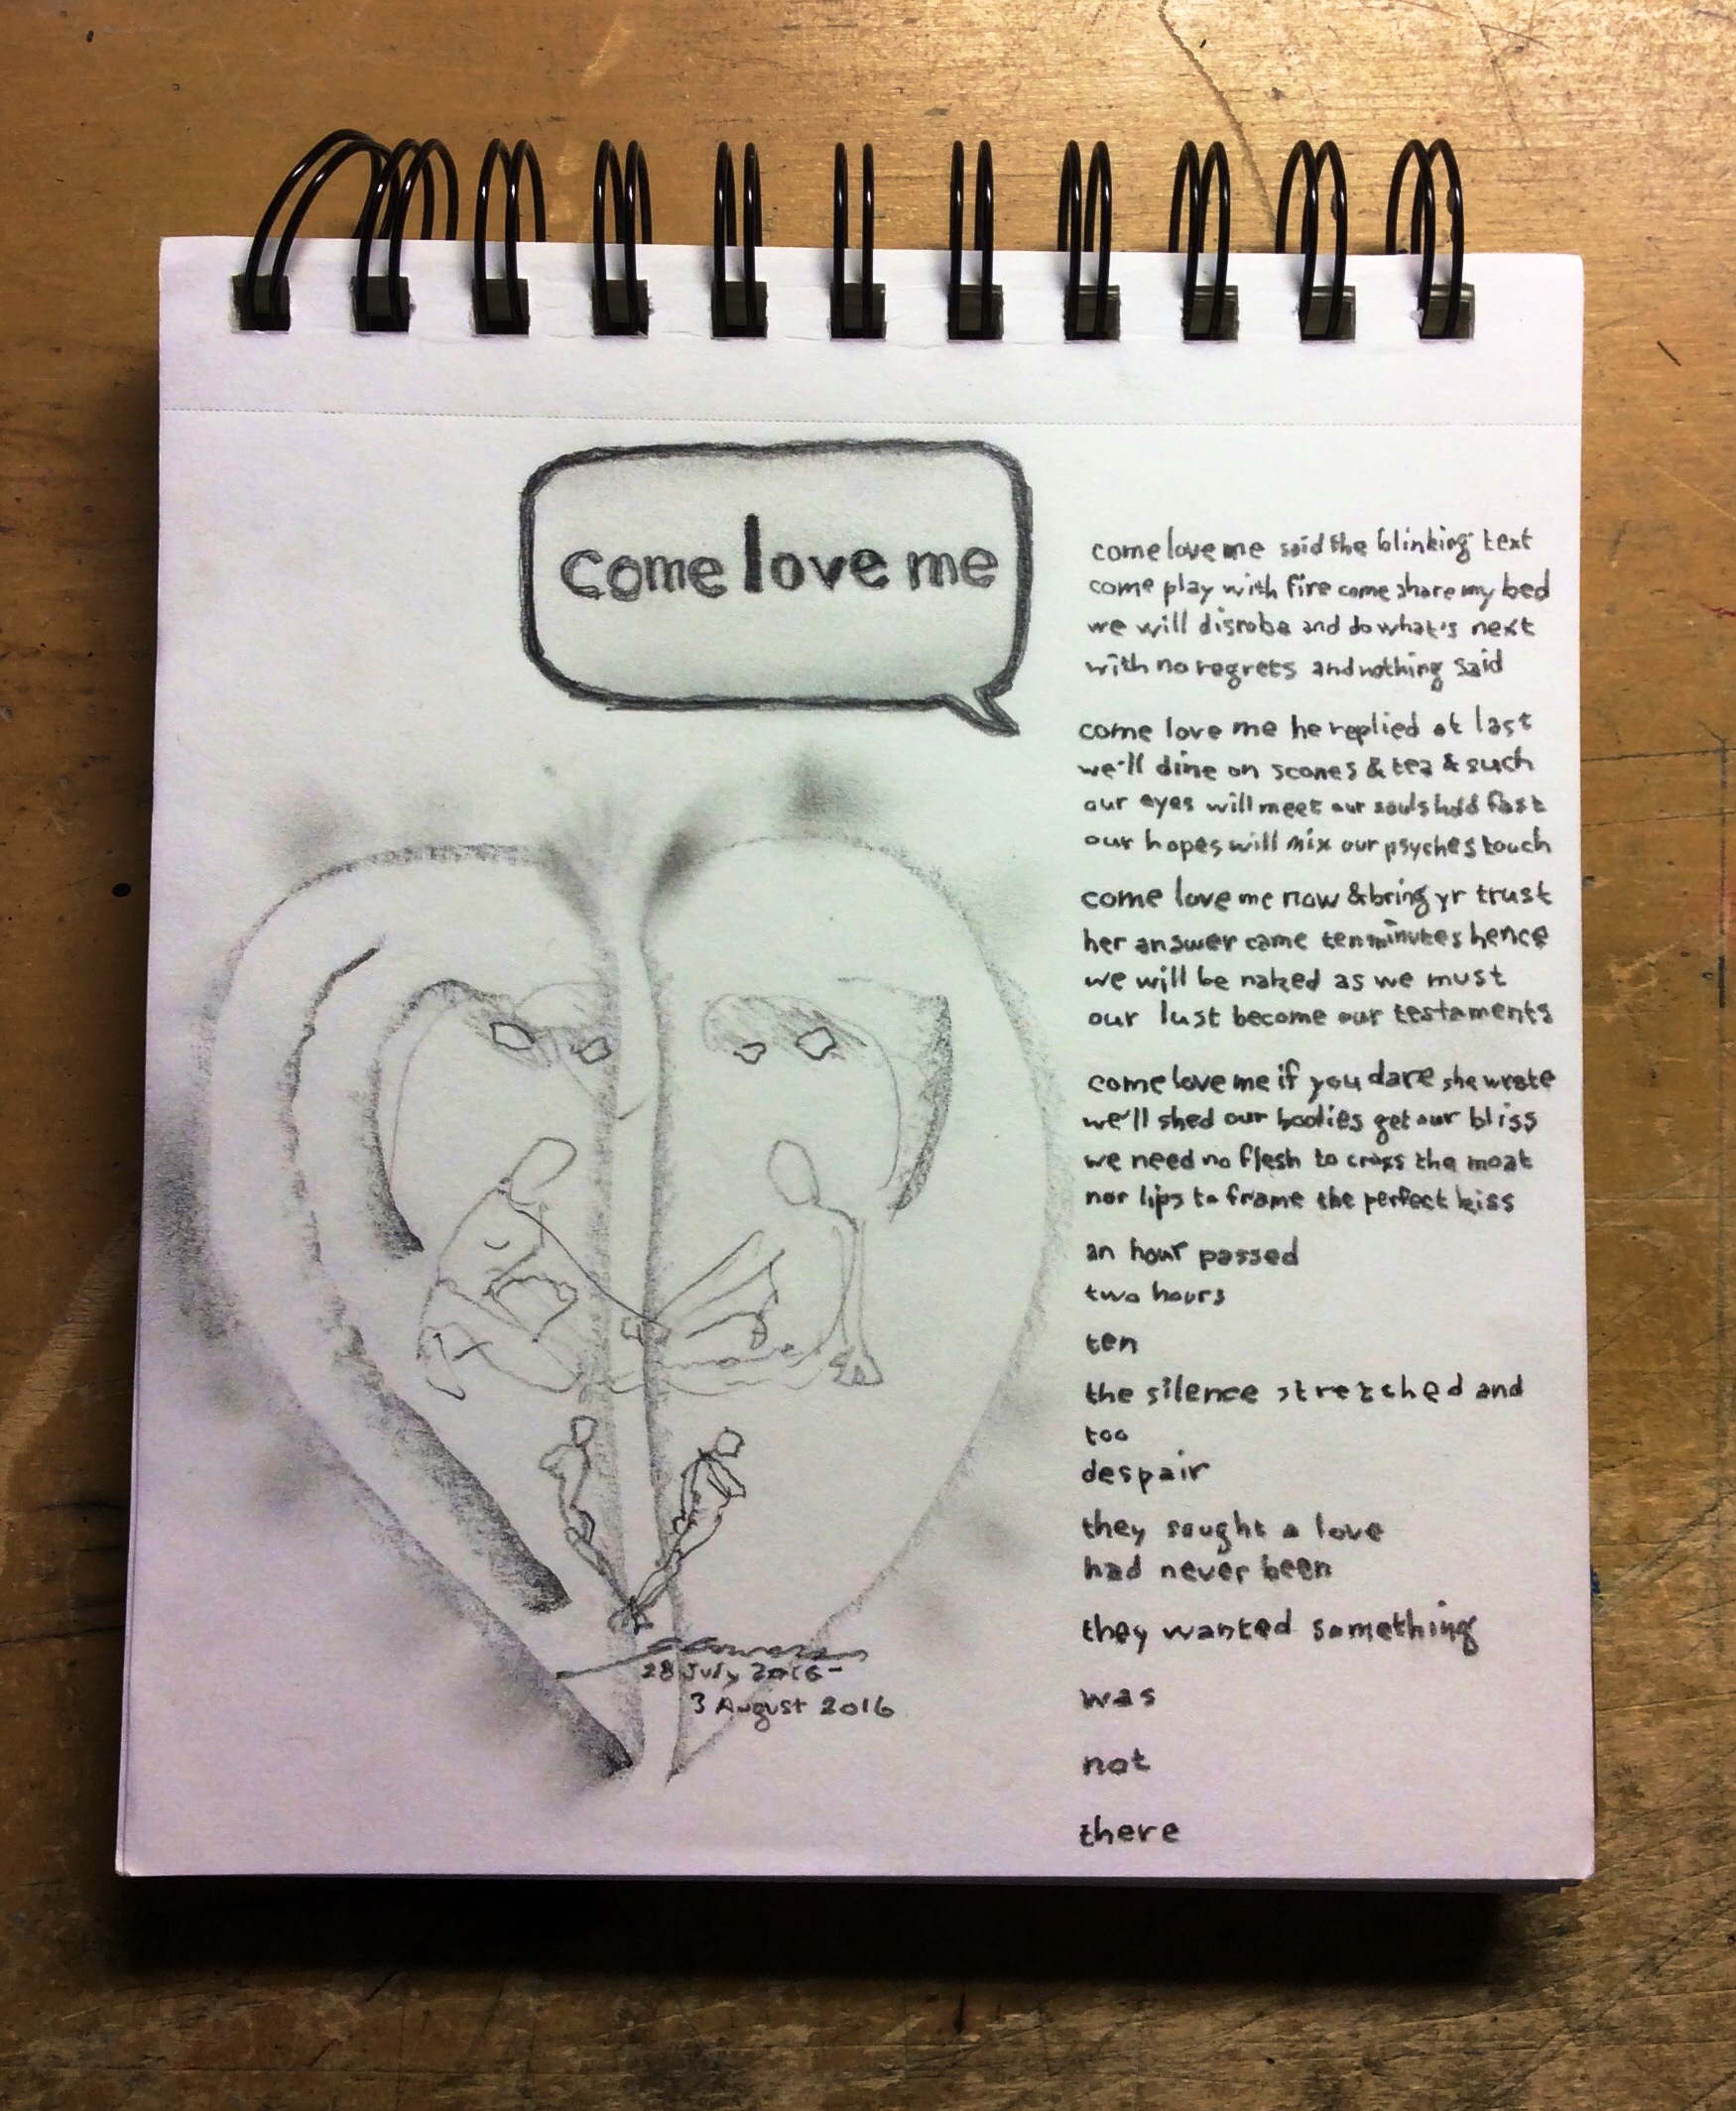 come love me
come love me said the blinking text
come play with fire come share my bed
we will disrobe and do what's next
with no regrets and nothing said
come love me he replied at last
we'll dine on scones & tea & such
our eyes will meet our souls hold fast
our hopes will mix our psyches touch
come love me now & bring yr trust
her answer came ten minutes hence
we will be naked as we must
our lust become our testaments
come love me if you dare she wrote
we'll shed our bodies get our bliss
we need no flesh to cross the moat
nor lips to frame the perfect kiss
an hour passed
two hours
ten
the silence stretched and
too
despair
they sought a love
had never been
they wanted something
was
not
there
28 July 2016-
3 August 2016